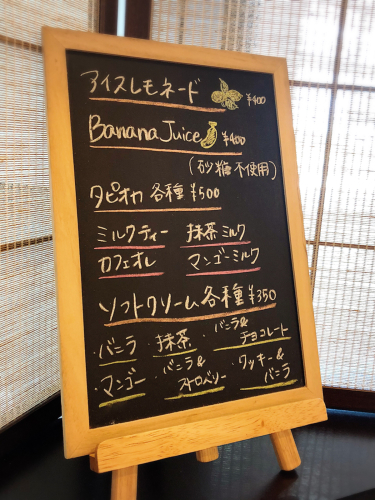 アイスレモネード ¥400
Banana Juice ¥400
(砂糖不使用)
タピオカ 各種 ¥500
ミルクティー 抹茶ミルク
カフェオレ マンゴーミルク
ソフトクリーム各種 ¥350
・バニラ ・抹茶 ・バニラ& チョコレート
・マンゴー ・バニラ& ストロベリー ・クッキー& バニラ